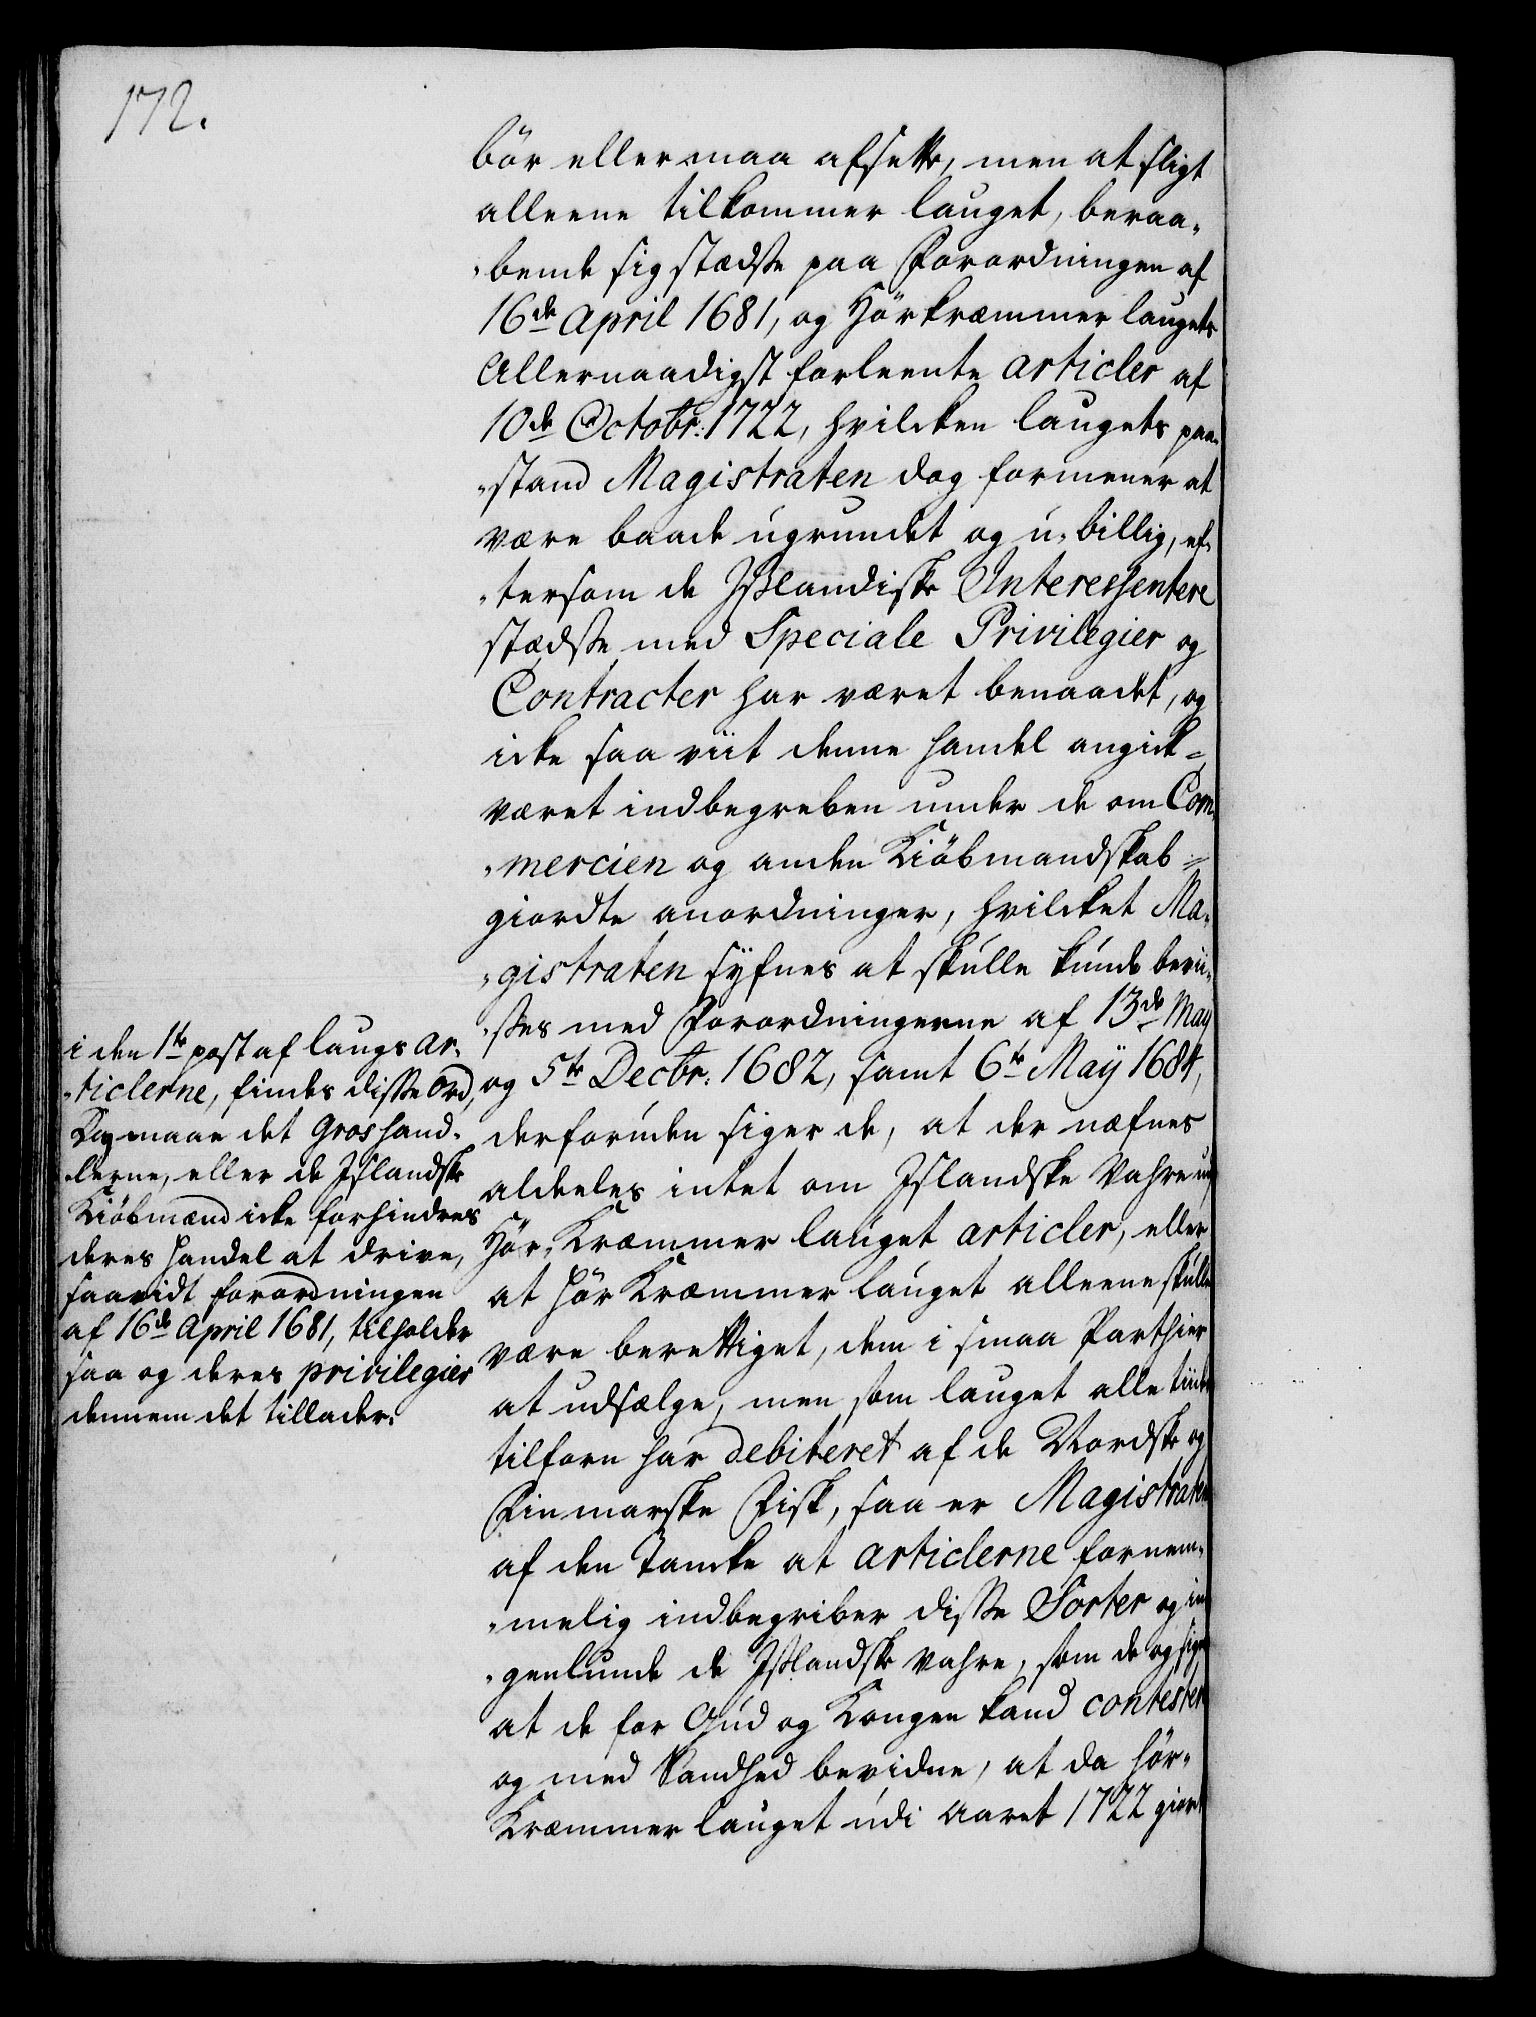 172.
bör eller maa afsætte, men at sligt
alleene tilkommer lauget, beraa-
-bende sig stædsse paa Forordningen af
16de April 1681, og Hörkræmmer laugets
Allernaadigst forleente articler af
10de Octobr: 1722, hvilcken laugets paa-
-stand Magistraten dog formener at
være baade ugrundet og u-billig, ef-
-tersom de Jsslandiske Interessentere
stædsse med Speciale Privilegier og
Contracter har været benaadet, og
icke saa viit denne handel angick =
været indbegreben under de om Com-
-mercien og anden Kiöbmandskab =
giordte anordninger, hvilcket Ma-
-gistraten syfnes at skulle kunde bevii-
-sses med Forordningerne af 13de May
og 5te Decbr: 1682, samt 6te Maÿ 1684,
derforuden siger de, at der næfnes
aldeeles intet om Jslandske Vahre udj
Hör-Kræmmer lauget articler, eller
at Hör Kræmmer lauget alleene skulle
være berettiget, dem i smaa Parthier
at udsælge, men som lauget alle tiider
tilforn har debiteret af de Nordske og
Finmarske Fisk, saa er Magistraten
af den Tancke at articlerne fornem-
-melig indbegriber disse Sorter og in-
-genlunde de Jsslandske Vahre, som de og siger
at de for Gud og Kongen kand contestere
og med Sandhed bevidne, at da Hör-
Kræmmer lauget udi Aaret 1722 giort
i den 1te post af laugs ar-
-ticlerne, findes disse ord,
Dog maae det Grosshand-
-lerne, eller de Jslandske
Kiöbmænd icke forhindres
deres Handel at drive,
saavidt forordningen
af 16de April 1681, tilholder
saa og deres privilegier
dennem det tillader.